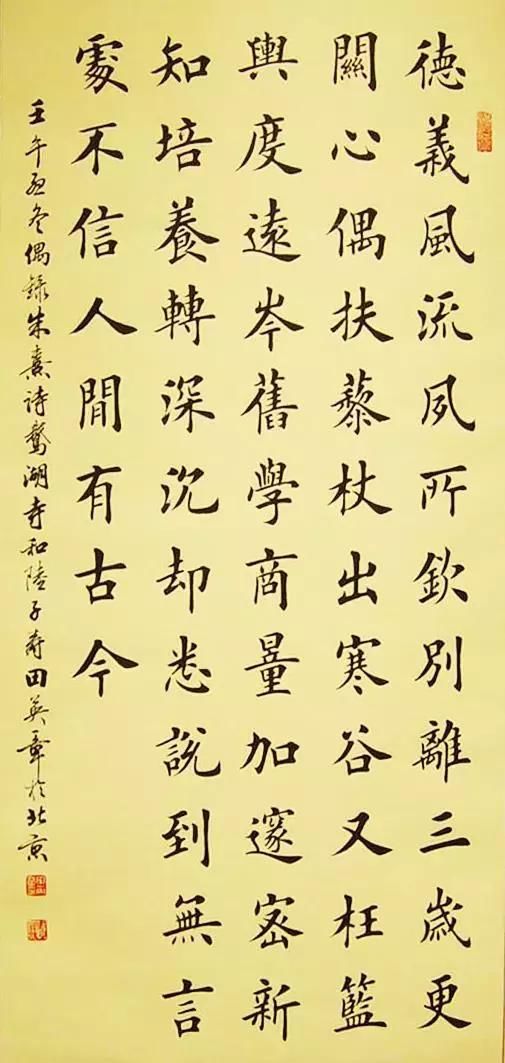 德義風流夙所欽別離三歲更
關心偶扶藜杖出寒谷又枉籃
輿度遠岑舊學商量加邃密新
知培養轉深沉却悉說到無言
處不信人間有古今
壬午孟冬偶錄朱熹詩鵝湖寺和陸子壽田英章於北京